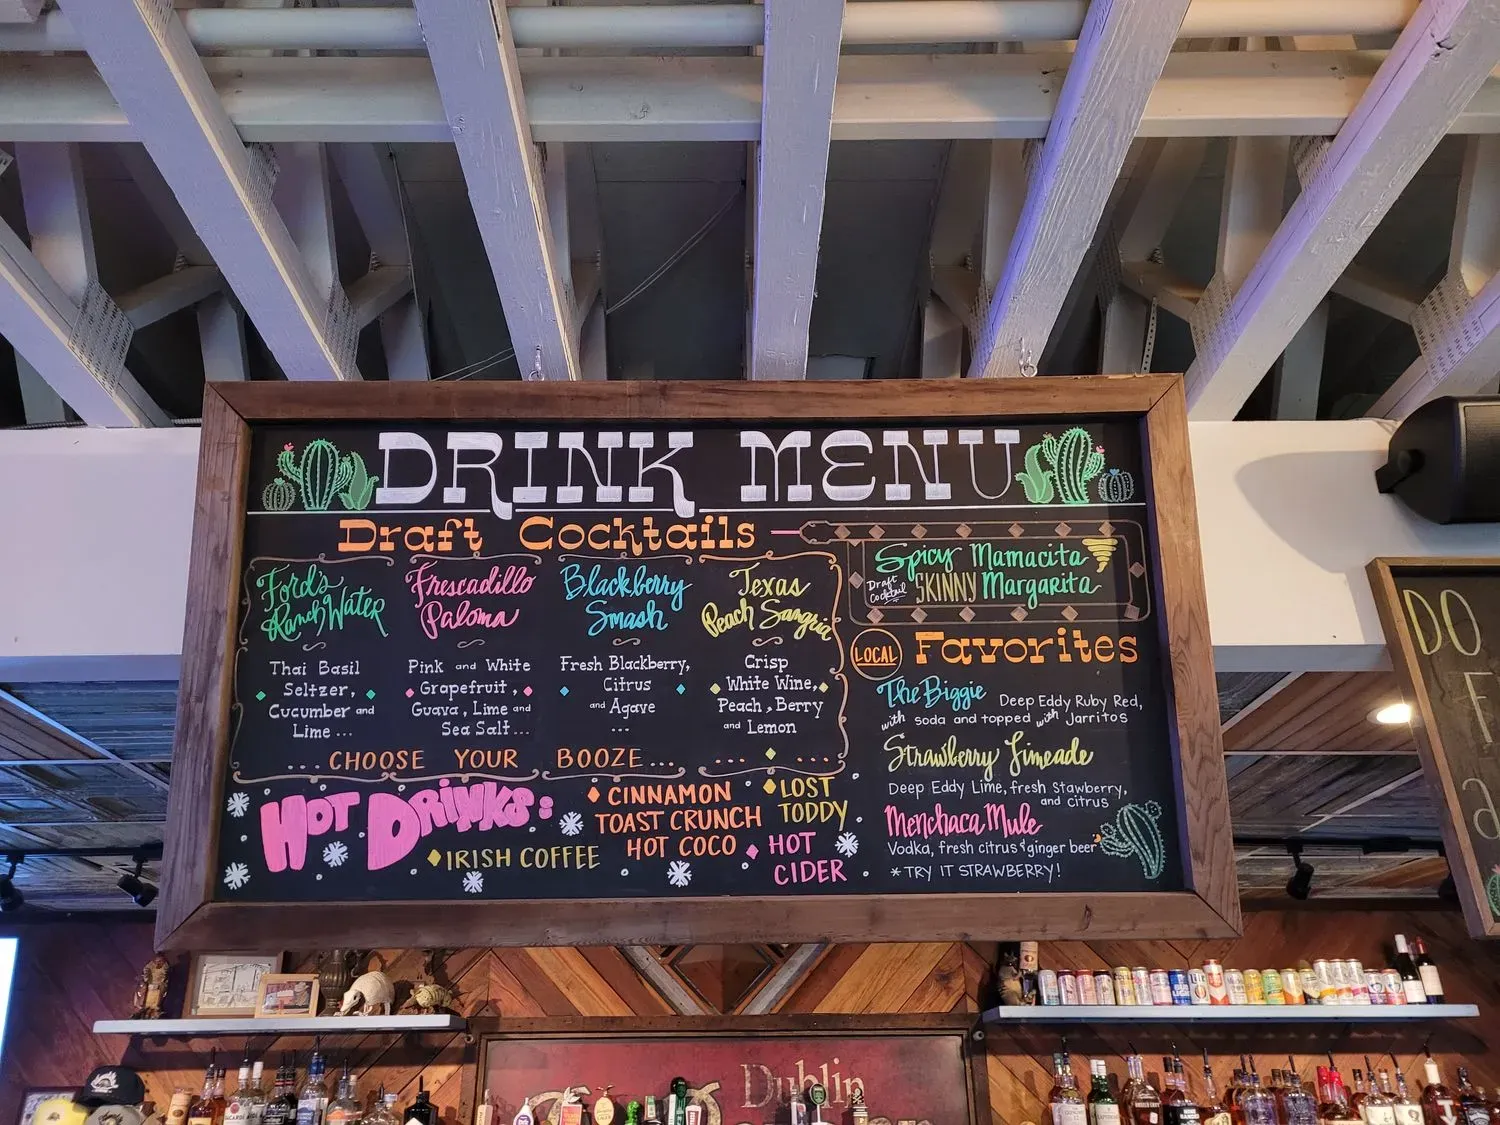 DRINK MENU
Draft Cocktails
Ford's
Ranch Water
Thai Basil
Seltzer,
Cucumber and
Lime ...
Frescadillo
Paloma
Pink and White
Grapefruit,
Guava, Lime and
Sea Salt...
Blackberry
Smash
Fresh Blackberry,
Citrus
and Agave
...
Texas
Peach Sangria
Crisp
White Wine,
Peach, Berry
and Lemon
... CHOOSE YOUR BOOZE ... ... ...
Spicy Mamacita
Draft
Cocktail
SKINNY Margarita
LOCAL Favorites
The Biggie Deep Eddy Ruby Red,
with soda and topped with Jarritos
Strawberry Limeade
Deep Eddy Lime, fresh stawberry,
and citrus
Menchaca Mule
Vodka, fresh citrus & ginger beer
* TRY IT STRAWBERRY!
HOT DRINKS:
IRISH COFFEE
CINNAMON
TOAST CRUNCH
HOT COCO
LOST
TODDY
HOT
CIDER
DO
Dublin